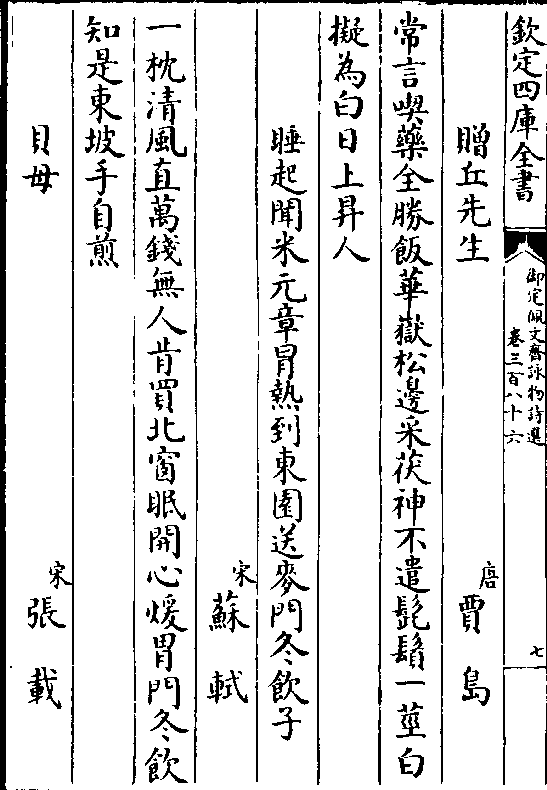 欽定四庫全書
御定佩文齋詠物詩選
卷三百八十六
七
贈丘先生
唐 賈島
常言喫藥全勝飯華嶽松邊采茯神不遣髭鬚一莖白
擬為白日上昇人
睡起聞米元章冒熱到東園送麥門冬飲子
宋 蘇軾
一枕清風直萬錢無人肯買北窗眠開心煖胃門冬飲
知是東坡手自煎
貝母
宋 張載